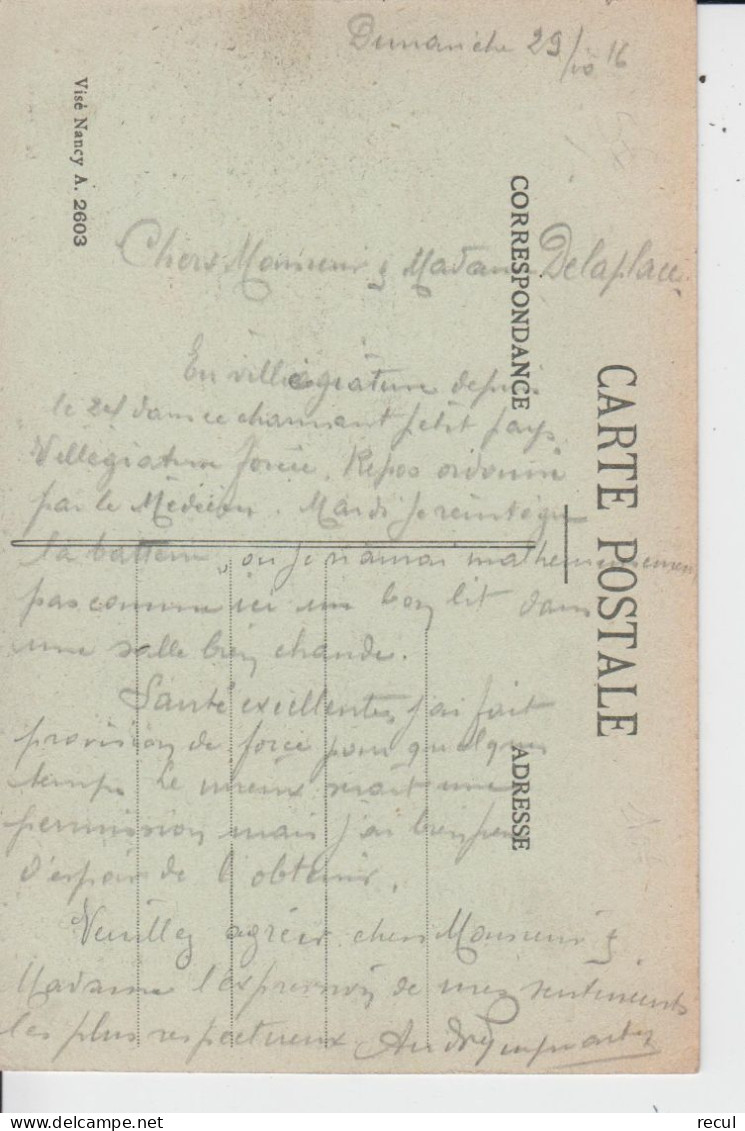 Dimanche 29/10 16
Visé Nancy A. 2603
CORRESPONDANCE
CARTE POSTALE
ADRESSE
Chers Monsieur & Madame Delaplace,
En villégiature depuis
le 24 dans ce charmant petit pays
Villégiature forcée. Repos ordonné
par le Médecin. Mardi je réintègre
la batterie, où je n'aurai malheureusement
pas comme ici un bon lit dans
une salle bien chaude.
Santé excellente, j'ai fait
provision de force pour quelque
temps le mieux serait une
permission mais j'ai bien peu
d'espoir de l'obtenir.
Veuillez agréer chers Monsieur &
Madame l'expression de mes sentiments
les plus respectueux. André
recul